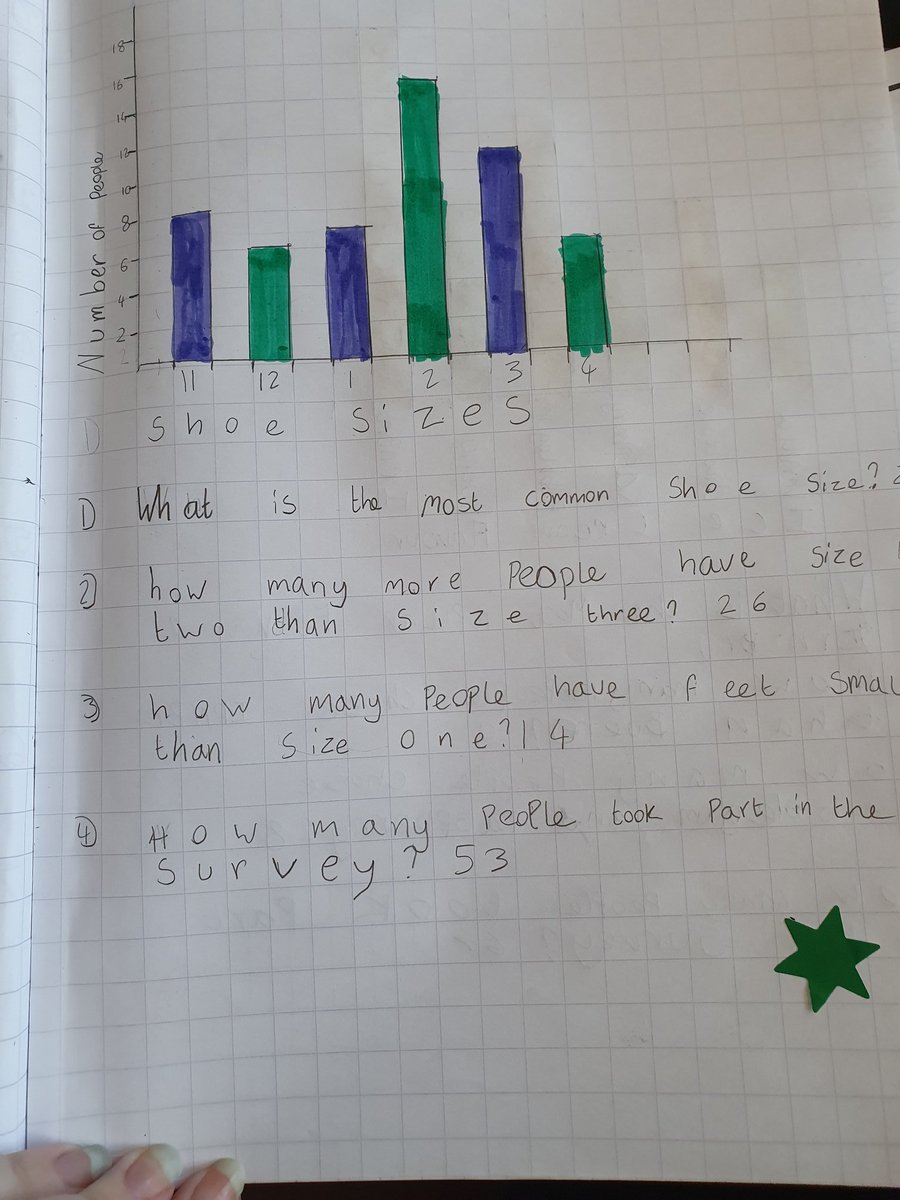 18
16
14
12
10
8
6
4
2
Number of People
11 12 1 2 3 4
Shoe Sizes
1) What is the most common Shoe Size?
2) how many more People have size
two than size three? 26
3) how many People have feet Smal
than size one? 14
4) How many People took Part in the
Survey? 53